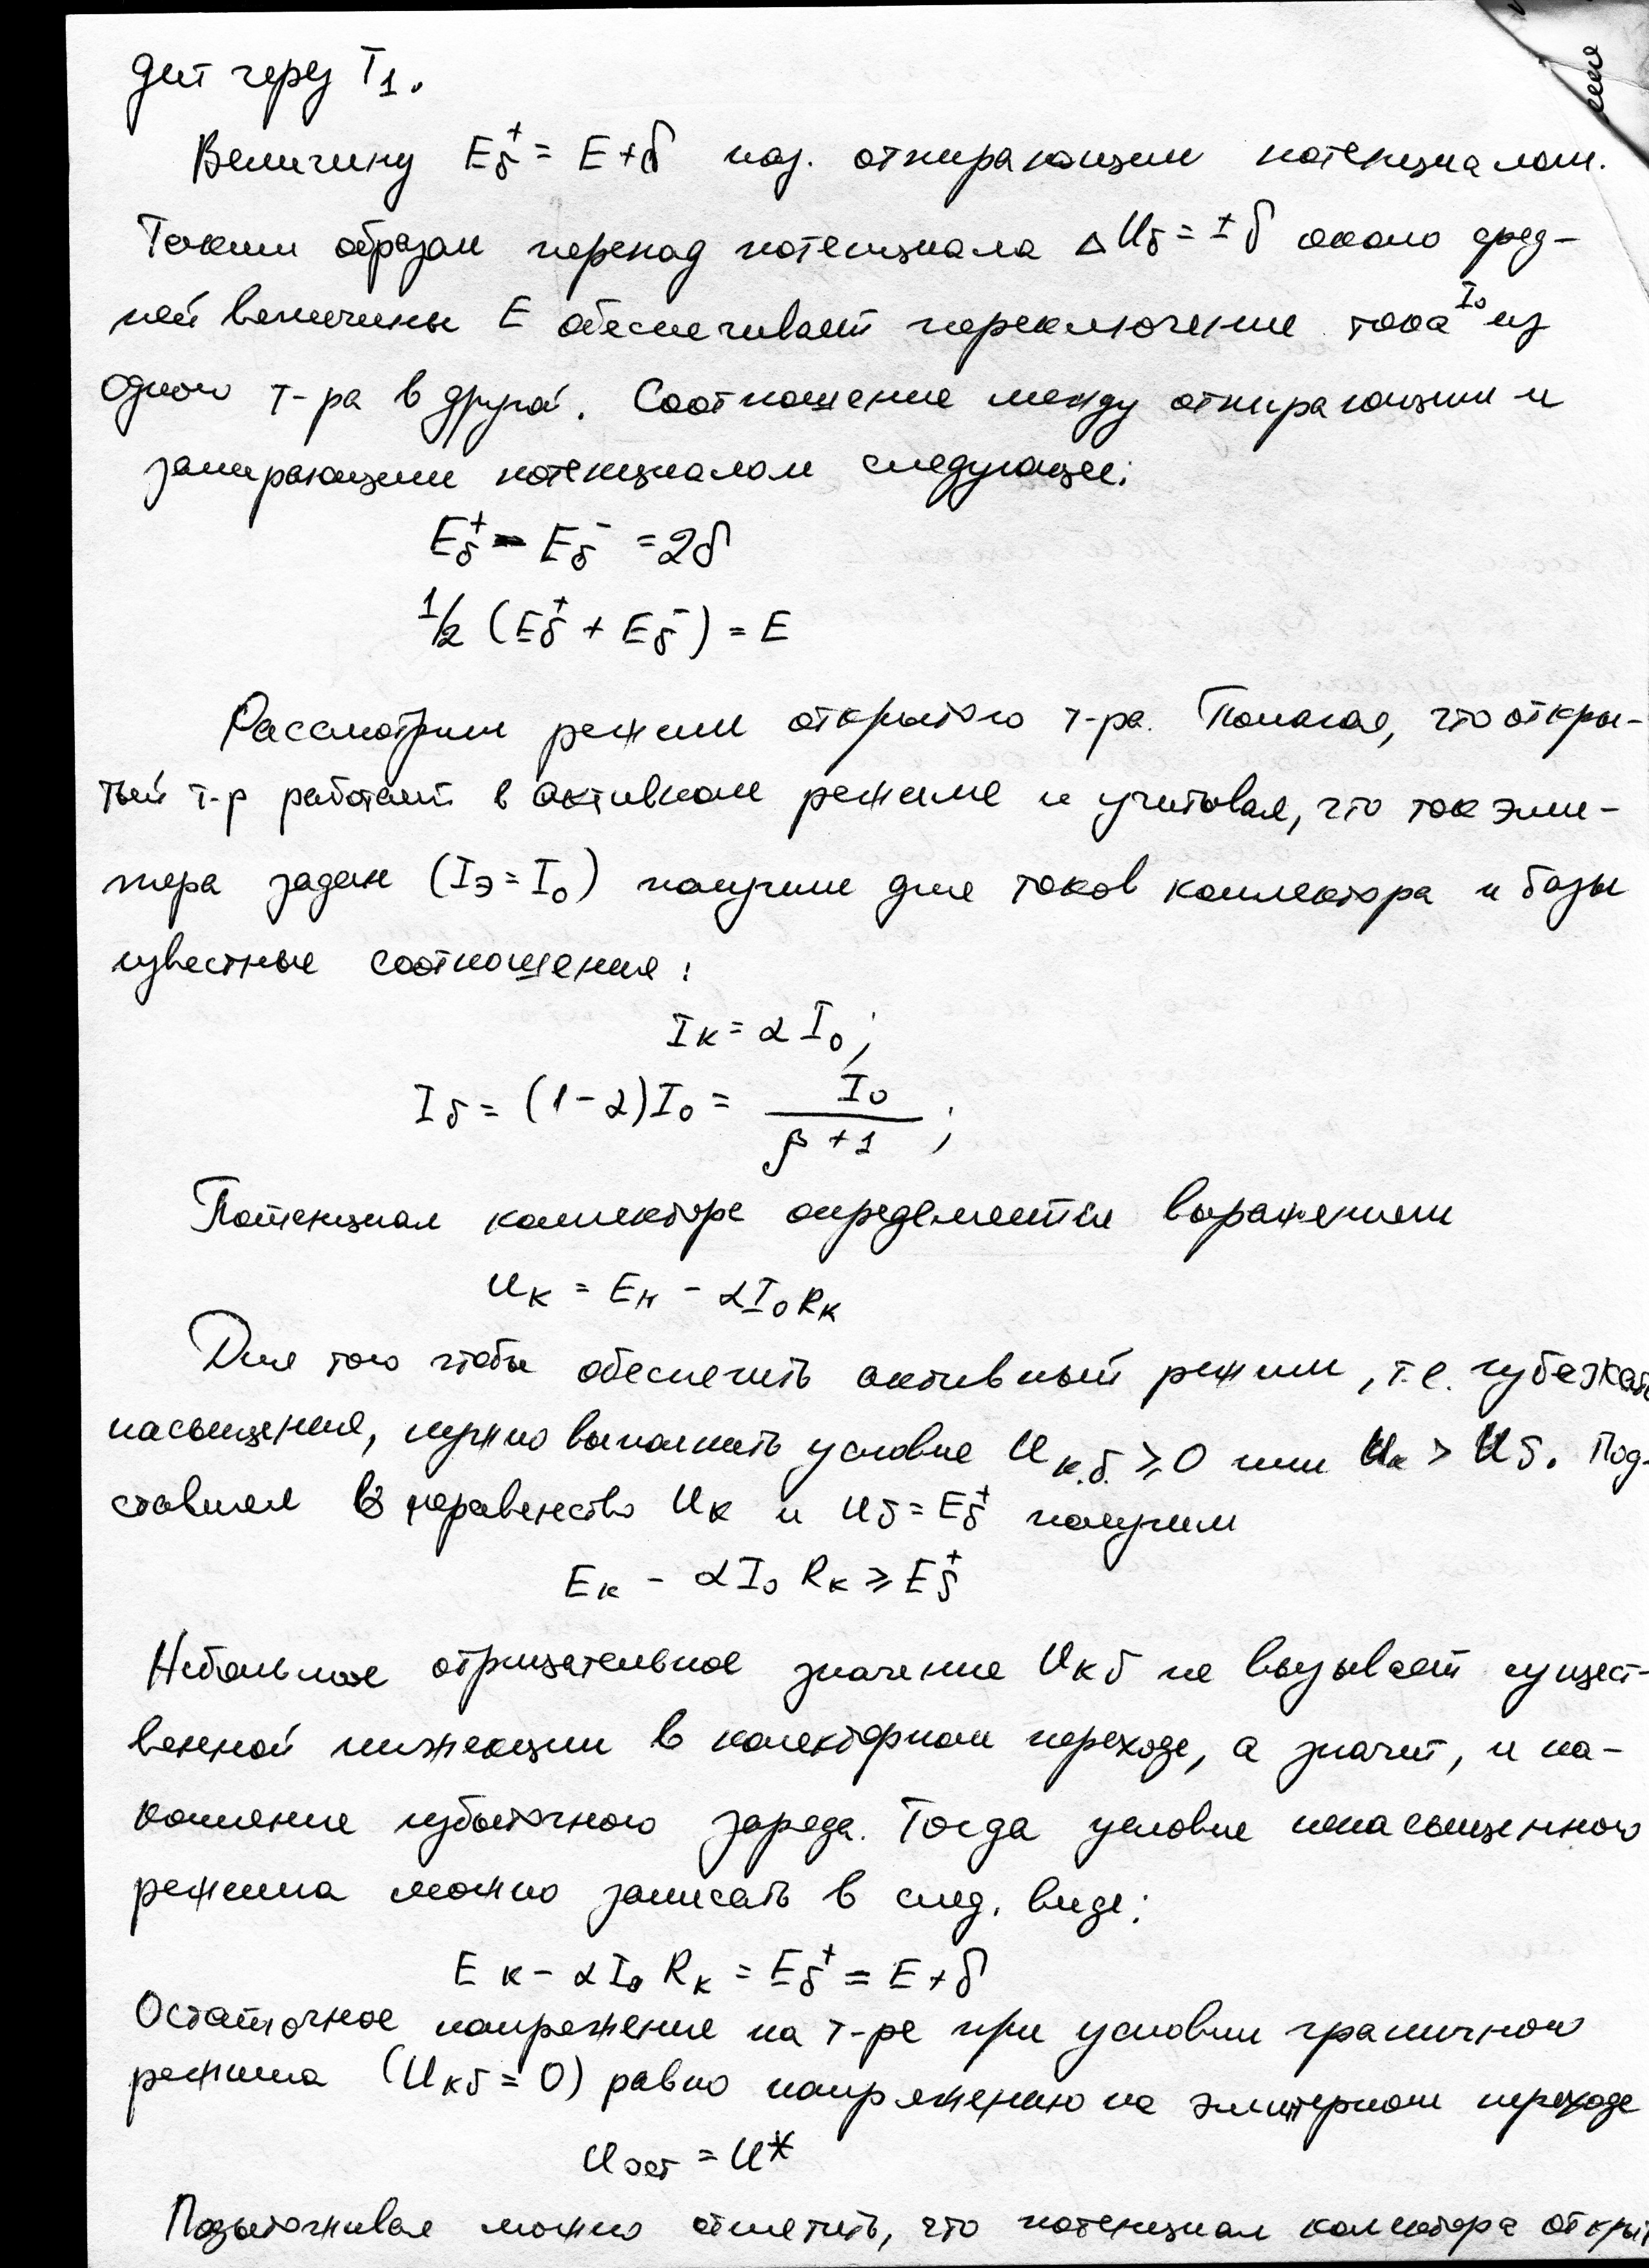 дит через T₁.
Величину Eб⁺ = E+δ наз. отпирающим потенциалом.
Таким образом перепад потенциала ΔUб = ±δ около сред-
ней величины E обеспечивает переключение тока I₀ из
одного т-ра в другой. Соотношение между отпирающим и
запирающим потенциалом следующее:
Eб⁺ - Eб⁻ = 2δ
1/2 (Eб⁺ + Eб⁻) = E
Рассмотрим режим открытого т-ра. Полагая, что откры-
тый т-р работает в активном режиме и учитывая, что ток эми-
тера задан (Iэ = I₀) получим для токов коллектора и базы
известные соотношения:
Iк = αI₀;
Iб = (1-α)I₀ = I₀ / (β+1);
Потенциал коллектора определяется выражением
Uк = Eк - αI₀Rк
Для того чтобы обеспечить активный режим, т.е. избежать
насыщения, нужно выполнить условие Uк.б. ≥ 0 или Uк > Uб. Под-
ставляя в неравенство Uк и Uб = Eб⁺ получим
Eк - αI₀Rк ≥ Eб⁺
Небольшое отрицательное значение Uкб не вызывает сущест-
венной инжекции в колекторном переходе, а значит, и на-
копление избыточного заряда. Тогда условие ненасыщенного
режима можно записать в след. виде:
Eк - αI₀Rк = Eб⁺ = E+δ
Остаточное напряжение на т-ре при условии граничного
режима (Uкб = 0) равно напряжению на эмиттерном переходе
Uост = U*
Подытоживая можно отметить, что потенциал колектора откры